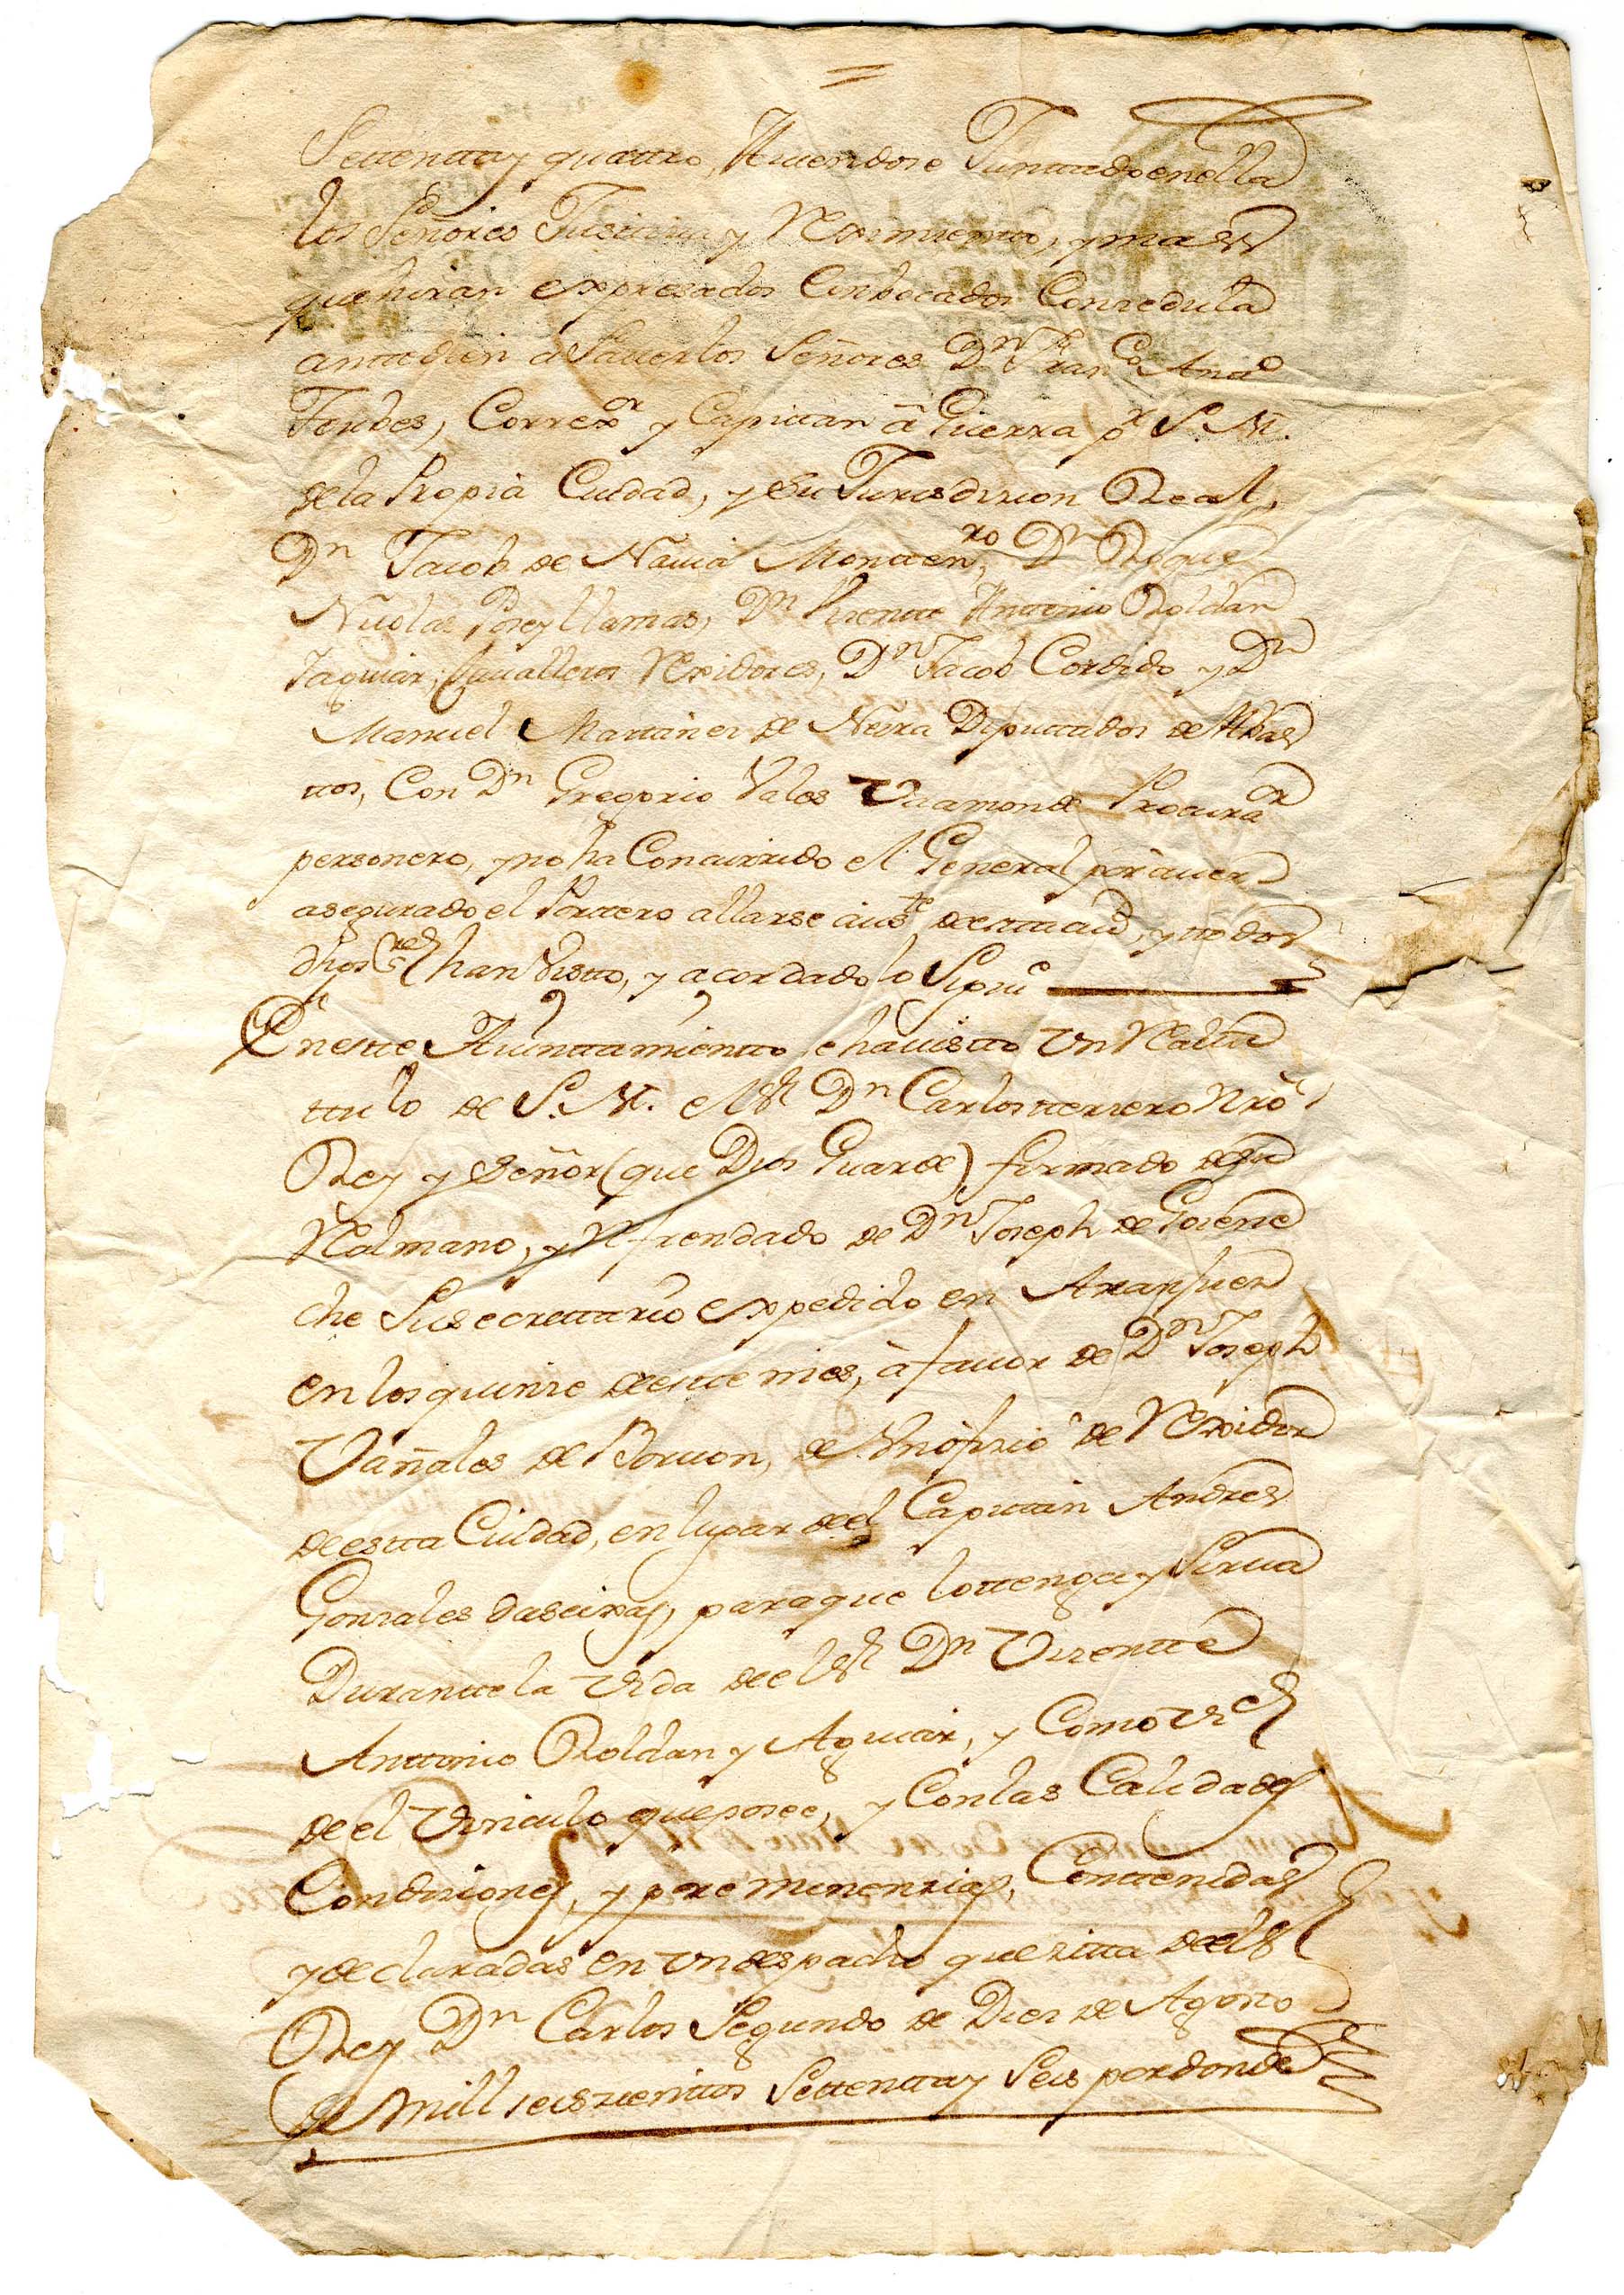 Settentta y quattro, Auiendose Junttado en ella
los Señores Justicia y Reximientto, y mas
que hiran expresados Conbocados Con cedula
antte diem a Sauer los Señores Dn. Franco. Ana
Correxor y Capittan â Guerra pr. S. M.
de la Propia Ciudad, y Su Jurisdizion Real,
Dn Jacob de Nauia Montten.ro, Dn Roque
Nicolas Pose y llamas, Dn Vicente Antonio Roldan
Jaguiar, Caualleros Rexidores, Dn Jacob Cordido y Dn
Manuel Martinez de Neira Diputtados de Abas
ttos, Con Dn Gregorio Vales Vaamonde Procurador
personero, y no ha Concurrido el General por auer
asegurado el Porttero allarse auste. de esta ciud. y ttodos
dhos Sres han Vistto, y acordado lo Siguie
En estte Aiunttamientto se ha uistto Vn Real tti
ttulo de S. M. el Sr Dn Carlos tterzero Nrô
Rey y Señor (que Dios Guarde) firmado de su
Real mano, y Refrendado de Dn Joseph de Goiene
che Su secrettario expedido en Aranjuez
en los quinze de estte mes, â fauor de Dn Joseph
Vañales de Boruon, de Vn ofizio de Rexidor
de estta Ciudad, en lugar de el Capittan Andres
Gonzales Daseixas, para que lo ttenga y Sirua
Durantte la Vida de el Sr Dn Vizentte
Anttonio Roldan y Aguiar, y Como
de el Vinculo que posee, y Con las Calidades
Condiziones, y preeminenzias, Conttenidas
y declaradas en Vn despacho que zitta de el Sr
Rey Dn Carlos Segundo de Diez de Agosto
de Mill seiszienttos Settentta y Seis por donde